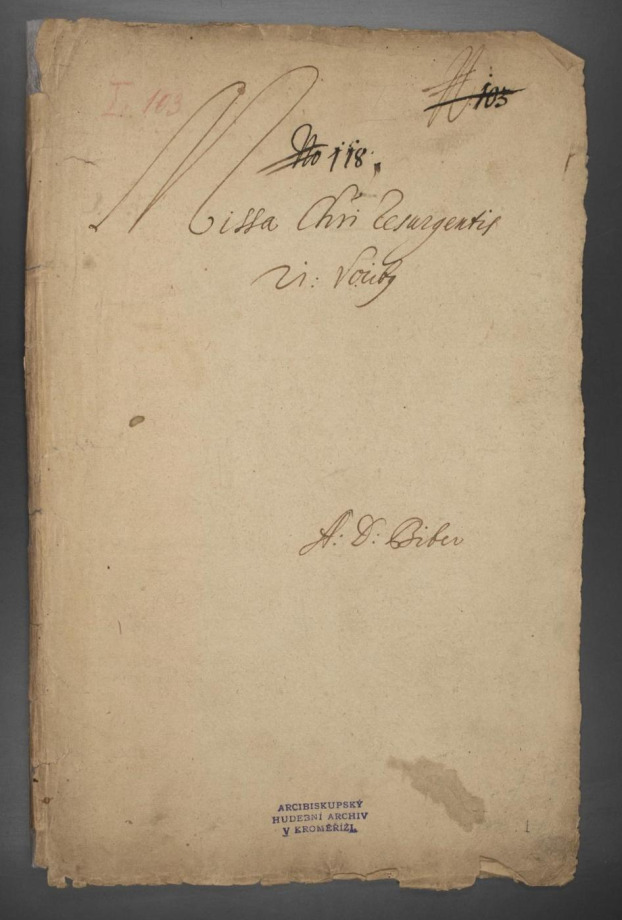 N: 103
I. 103
No 118.
Missa Chri Resurgentis
21: Vocibg
A: D: Biber
ARCIBISKUPSKÝ
HUDEBNÍ ARCHIV
V KROMĚŘÍŽI.
1